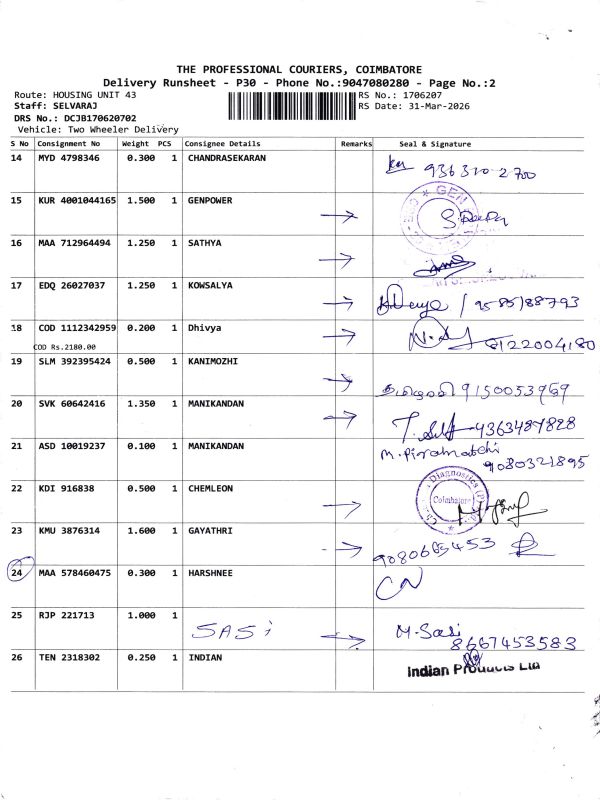 THE PROFESSIONAL COURIERS, COIMBATORE
Delivery Runsheet - P30 - Phone No.:9047080280 - Page No.:2
Route: HOUSING UNIT 43
RS No.: 1706207
Staff: SELVARAJ
RS Date: 31-Mar-2026
DRS No.: DCJB170620702
Vehicle: Two Wheeler Delivery
S No Consignment No Weight PCS Consignee Details Remarks Seal & Signature
14 MYD 4798346 0.300 1 CHANDRASEKARAN
15 KUR 4001044165 1.500 1 GENPOWER → GEN
16 MAA 712964494 1.250 1 SATHYA →
17 EDQ 26027037 1.250 1 KOWSALYA → / 9585188793
18 COD 1112342959 0.200 1 Dhivya → 8122004180
COD Rs.2180.00
19 SLM 392395424 0.500 1 KANIMOZHI → 9150053969
20 SVK 60642416 1.350 1 MANIKANDAN →
21 ASD 10019237 0.100 1 MANIKANDAN 9080321895
22 KDI 916838 0.500 1 CHEMLEON → Diagnostics Coimbatore
23 KMU 3876314 1.600 1 GAYATHRI →
24 MAA 578460475 0.300 1 HARSHNEE
25 RJP 221713 1.000 1 SASi → M. Sasi
8667453583
26 TEN 2318302 0.250 1 INDIAN Indian Products Ltd